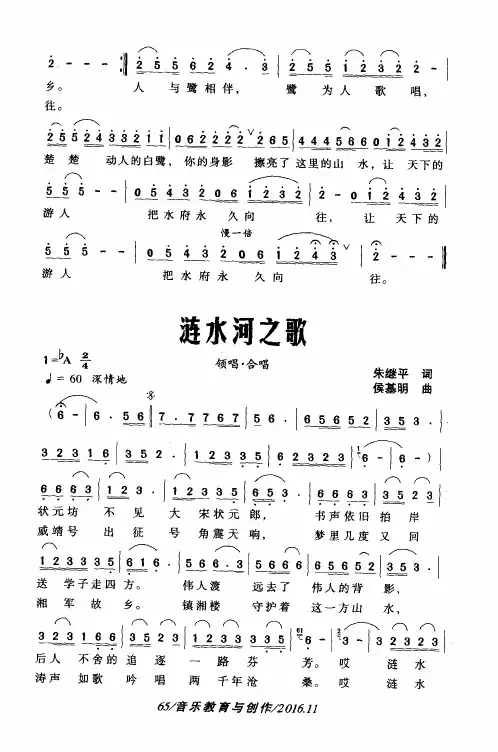 2 - - - :‖ 2 5 5 6 2 4 . 3 | 2 5 5 1 2 3 2 2 - |
乡。 人 与鹭相伴， 鹭 为人 歌 唱，
往。
2 5 5 2 4 3 3 2 1 1 | 0 6 2 2 2 2 ∨ 2 6 5 | 4 4 4 5 6 6 0 1 2 4 3 2 |
楚 楚 动人的白鹭，你的身影 擦亮了 这里的山 水，让 天下的
5 5 5 - - | 0 5 4 3 2 0 6 1 2 3 2 | 2 - 0 1 2 4 3 2 |
游人 把水府永 久向 往， 让 天下的
慢一倍
5 5 5 - - | 0 5 4 3 2 0 6 1 2 4 3 ∨ | 2 - - - ‖
游人 把水府永 久向 往。
涟水河之歌
1=♭A 2/4
领唱·合唱
♩= 60 深情地
朱继平 词
侯基明 曲
( 6 - | 6 . 5 6 ‖ 7 . 7 7 6 7 | 5 6 . | 6 5 6 5 2 | 3 5 3 . |
3 2 3 1 6 | 3 5 2 . | 1 2 3 3 5 | 6 2 3 2 3 | 6 - | 6 - ) |
6 6 6 3 | 1 2 3 . | 1 2 3 3 5 | 6 5 3 . | 6 6 6 3 | 3 5 2 3 |
状元坊 不 见 大 宋状元 郎， 书声依旧 拍 岸
威靖号 出 征 号 角震天 响， 梦里几度 又 回
1 2 3 3 3 5 | 6 1 6 . | 5 6 6 . 3 | 5 6 6 6 | 6 6 5 6 5 2 | 3 5 3 . |
送 学子走四 方。 伟人渡 远去了 伟人的背 影，
湘 军 故 乡。 镇湘楼 守护着 这一方山 水，
3 2 3 1 6 6 | 3 5 2 3 | 1 2 3 3 3 3 5 | 6 - | 3 - | 3 2 3 2 3 |
后人 不舍的 追 逐 一 路 芬 芳。哎 涟 水
涛声 如歌 吟 唱 两 千年沧 桑。哎 涟 水
65/音乐教育与创作/2016.11